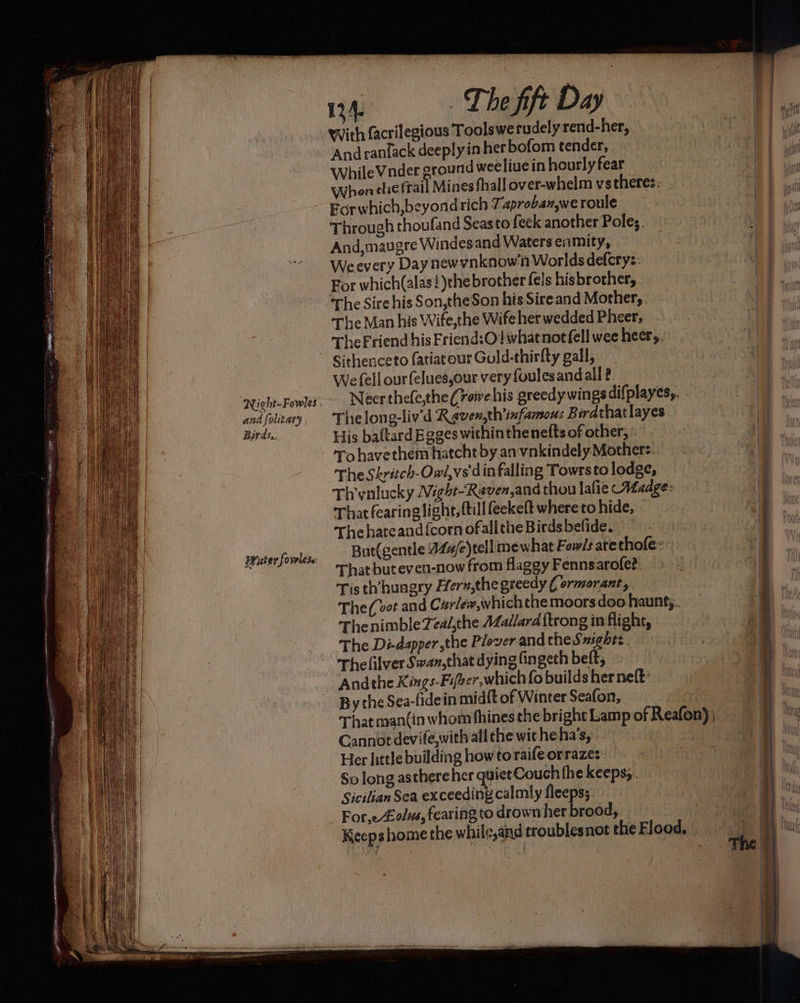 134. The fift Day
With ſacrilegious Tools we rudely rend-her,
And ranſack deeply in her boſom tender,
While Vnder ground wee liue in hourly fear
When the frail Mines ſhall over-whelm vs there:
For which, beyond rich Taproban, we roule
Through thouſand Seas to ſeek another Pole;
And, maugre Windes and Waters enmity,
We every Day new vnknow'n Worlds deſcry:
For which (alas!) the brother ſels his brother,
The Sire his Son, the Son his Sire and Mother,
The Man his Wife, the Wife her wedded Pheer,
The Friend his Friend: O! what not ſell wee heer,
Sithence to ſatiat our Gold-thirſty gall,
We ſell our ſelues, our very ſoules and all?
Night-Fowles
and ſolitary
Birds.
Neer theſe, the Crowe his greedy wings diſplayes,
The long-liv'd Raven, th'infamous Bird that layes
His baſtard Egges within the neſts of other,
To have them hatcht by an vnkindely Mother:
The Skritch-Owl, vs'd in falling Towrs to lodge,
Th'vnlucky Night-Raven, and thou laſie Madge
That fearing light, ſtill ſeekeſt where to hide,
The hate and ſcorn of all the Birds beſide.
Water fowles.
But (gentle Muſe) tell me what Fowls are thoſe
That but even-now from flaggy Fenns aroſe?
Tis th'hungry Hern, the greedy Cormorant,
The Coot and Curlew, which the moors doo haunt;
The nimble Teal, the Mallard ſtrong in flight,
The Di-dapper, the Plover and the Snight:
The ſilver Swan, that dying ſingeth beſt,
And the Kings-Fiſher, which ſo builds her neſt
By the Sea-ſide in midſt of Winter Seaſon,
That man (in whom ſhines the bright Lamp of Reaſon)
Cannot deviſe, with all the wit he ha's,
Her little building how to raiſe or raze:
So long as there her quiet Couch ſhe keeps,
Sicilian Sea exceeding calmly ſleeps;
For, Æolus, fearing to drown her brood,
Keeps home the while, and troubles not the Flood.
The